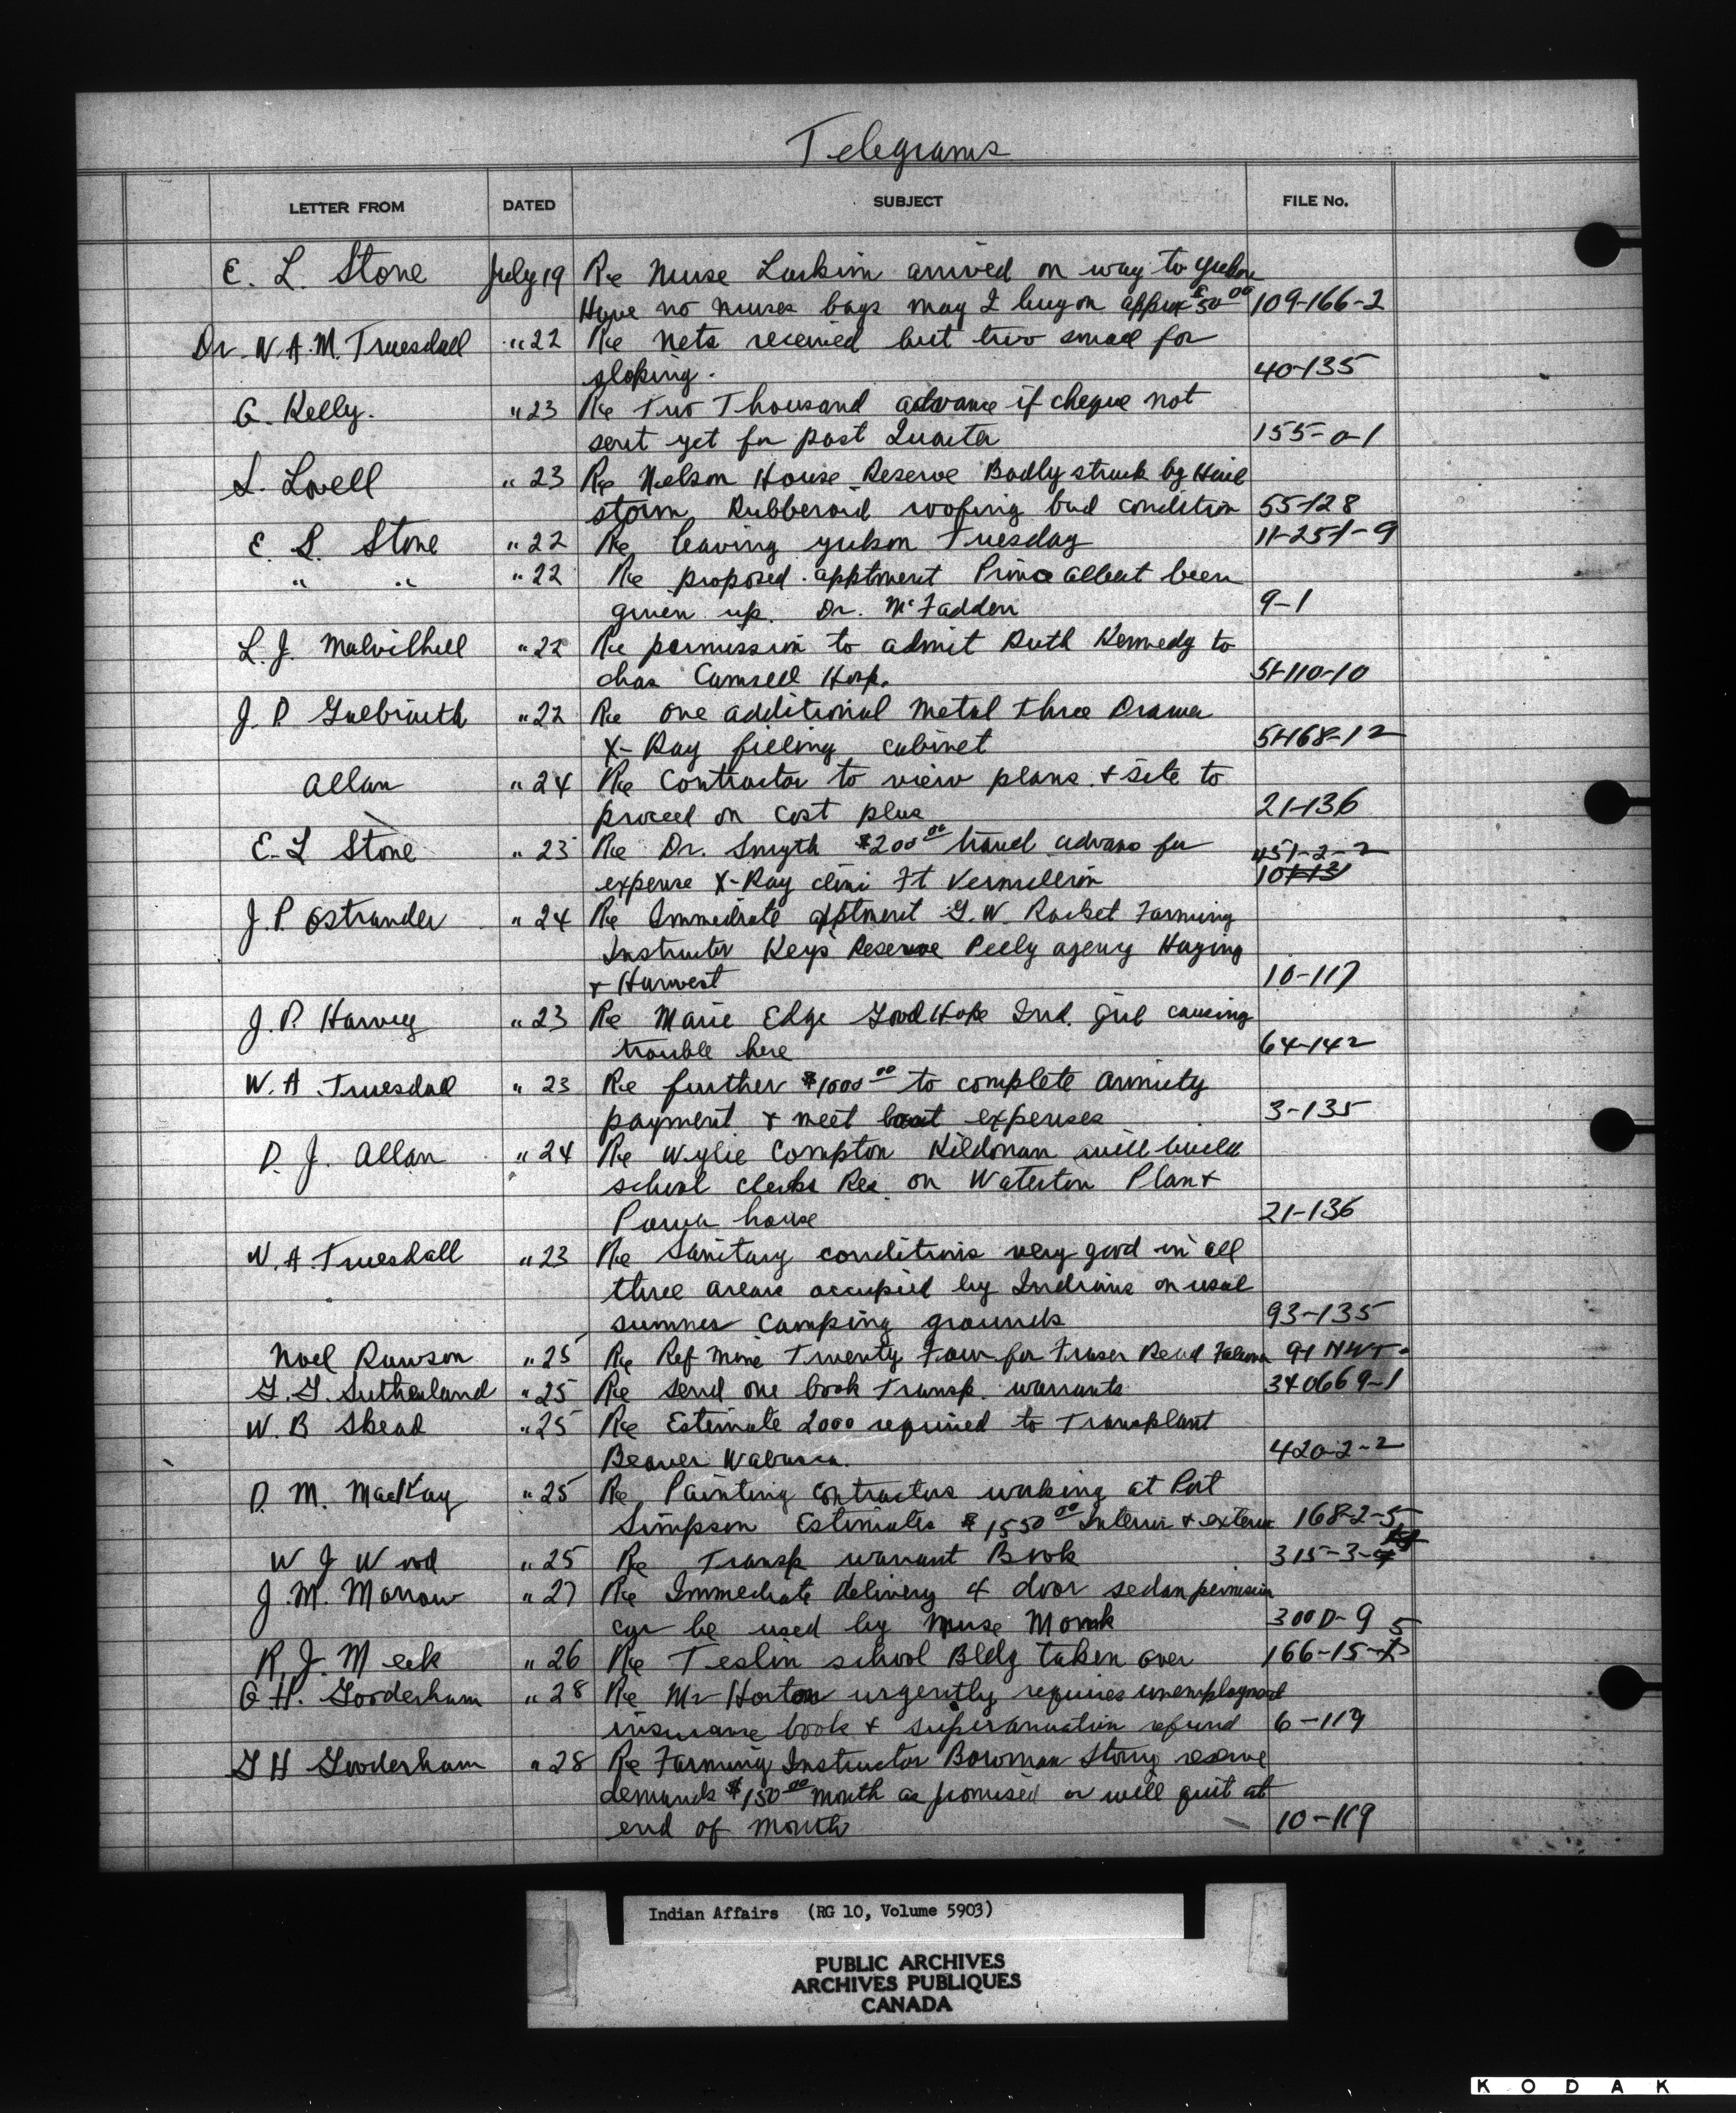 Telegrams
LETTER FROM DATED SUBJECT FILE No.
E. L. Stone July 19 Re Nurse Larkin arrived on way to Yukon
Have no nurses bags may I buy on approx $50 00 109-166-2
Dr. W.A.M. Truesdall " 22 Re Nets received but two small for
sloping. 40-135
G. Kelly. " 23 Re Two Thousand advance if cheque not
sent yet for past Quarter 155-0-1
S. Lovell " 23 Re Nelson House Reserve Badly struck by Hail
storm Rubberoid roofing bad condition 55-128
E. L. Stone " 22 Re leaving Yukon Tuesday 11-251-9
" " " 22 Re proposed apptment Prince Albert been
given up. Dr. McFadden 9-1
L. J. " 22 Re permission to admit Ruth Kennedy to
chas Camsell Hosp. 51-110-10
J. P. Galbraith " 22 Re one additional metal three Drawer
X-Ray fieling cabinet 51-168-12
Allan " 24 Re Contractor to view plans & site to
proceed on cost plus 21-136
E. L Stone " 23 Re Dr. Smyth $200 00 travel advans for 451-2-2
expense X-Ray clini Ft Vermillion
J. P. Ostrander " 24 Re Immediate apptment G. W. Rocket Farming
Instructor Keys Reserve Pelly agency Haying
& Harvest 10-117
J. P. Harvey " 23 Re Marie Edge Good Hope Ind. girl causing
trouble here 64-142
W. A. Truesdall " 23 Re further $1000 00 to complete annuity
payment & meet boat expenses 3-135
D. J. Allan " 24 Re Wylie Compton Kildonan will build
school clerks Res on Waterton Plan &
Power house 21-136
W. A. Truesdall " 23 Re Sanitary conditions very good in all
three areas occupied by Indians on usal
summer camping grounds 93-135
Noel Rawson " 25 Re Ref mine Twenty Four for Fraser Read 91 NWT-
G. G. Sutherland " 25 Re send one book Transp. warrants 340669-1
W. B Shead " 25 Re Estimate 2000 required to Transplant
Beaver Wabasca. 420-2-2
D. M. MacKay " 25 Re Painting contractors working at Port
Simpson Estimates $1550 00 Interior & exterior 168-2-5
W J Wood " 25 Re Transp warrant Book 315-3-
J. M. Morrow " 27 Re Immediate delivery 4 door sedan permission
car be used by Nurse Monk 300 D-9
R. J. Meek " 26 Re Teslin school Bldg taken over 166-15-5
G. H. Gooderham " 28 Re Mr Horton urgently requires unemployment
insurance book & superannuation refund 6-119
G H Gooderham " 28 Re Farming Instructor Bowman Stony reserve
demands $150 00 month as promised or will quit at
end of month 10-119
Indian Affairs (RG 10, Volume 5903)
PUBLIC ARCHIVES
ARCHIVES PUBLIQUES
CANADA
KODAK